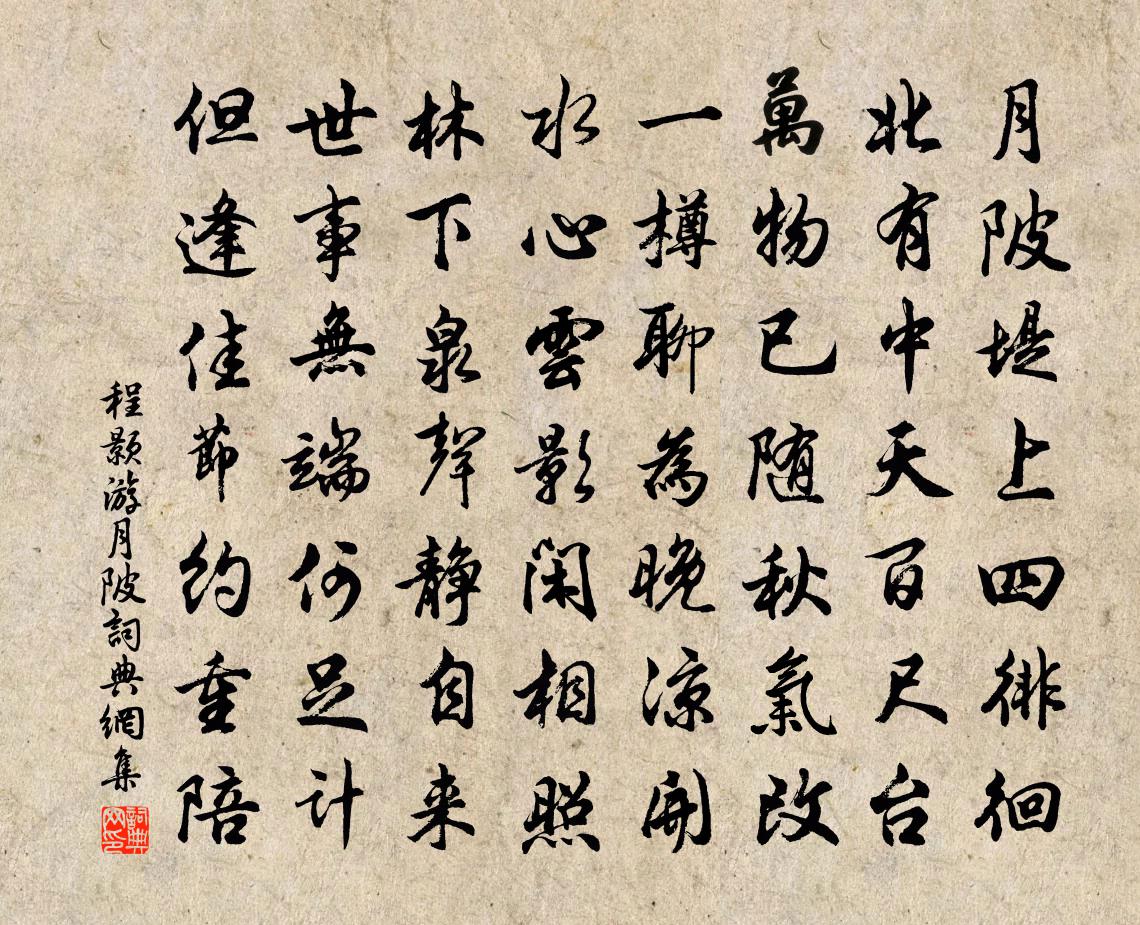 月陂堤上四徘徊
北有中天百尺台
萬物已随秋氣改
一樽聊為晚凉開
水心雲影閑相照
林下泉聲靜自来
世事無端何足計
但逢佳節約重陪
程顥游月陂詞典網集
詞典网印